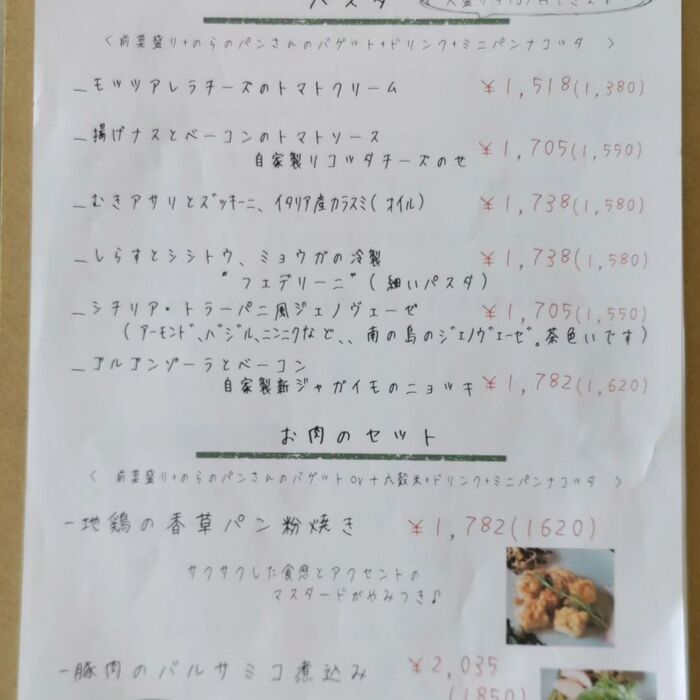 パスタ
〈 前菜盛り+のらのパンさんのバゲット+ドリンク+ミニパンナコッタ 〉
モッツアレラチーズのトマトクリーム ¥1,518(1,380)
揚げナスとベーコンのトマトソース
自家製リコッタチーズのせ ¥1,705(1,550)
むきアサリとズッキーニ、イタリア産カラスミ(オイル) ¥1,738(1,580)
しらすとシシトウ、ミョウガの冷製 ¥1,738(1,580)
"フェデリーニ"(細いパスタ)
シチリア・トラーパニ風ジェノヴェーゼ ¥1,705(1,550)
(アーモンド、バジル、ニンニクなど、、南の島のジェノヴェーゼ。茶色いです)
ゴルゴンゾーラとベーコン
自家製新ジャガイモのニョッキ ¥1,782(1,620)
お肉のセット
〈 前菜盛り+のらのパンさんのバゲット or 十六穀米+ドリンク+ミニパンナコッタ 〉
-地鶏の香草パン粉焼き ¥1,782(1620)
サクサクした食感とアクセントの
マスタードがやみつき♪
-豚肉のバルサミコ煮込み ¥2,035
(1850)